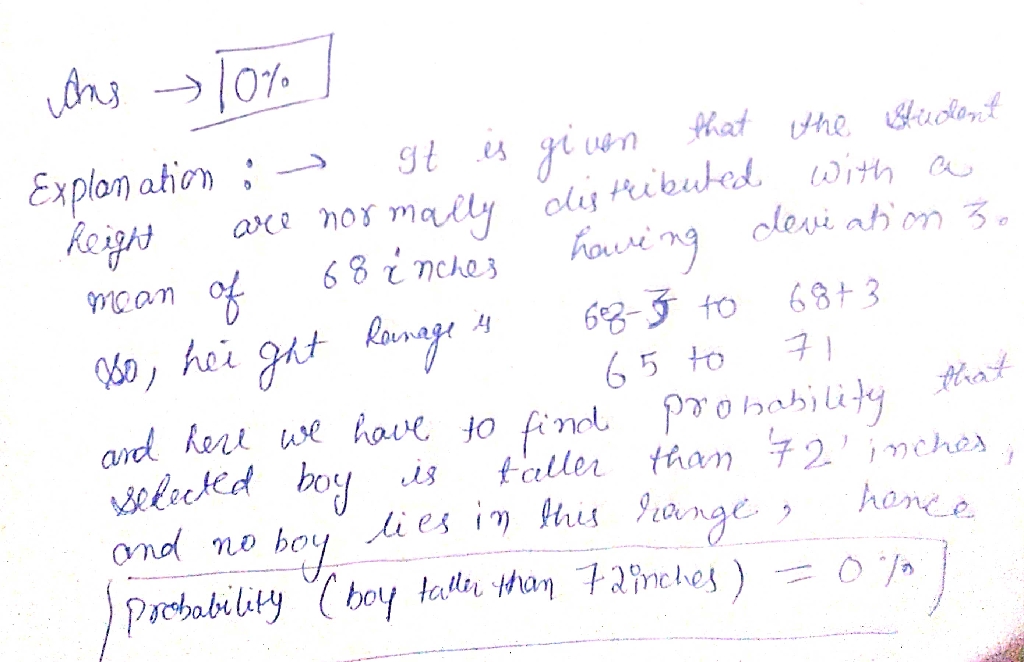 Ans → 0%
Explanation : → It is given that the student
height are normally distributed with a
mean of 68 inches having deviation 3.
So, height Range is 68-3 to 68+3
65 to 71
and here we have to find probability that
selected boy is taller than '72' inches,
and no boy lies in this range, hence
Probability (boy taller than 72inches) = 0%